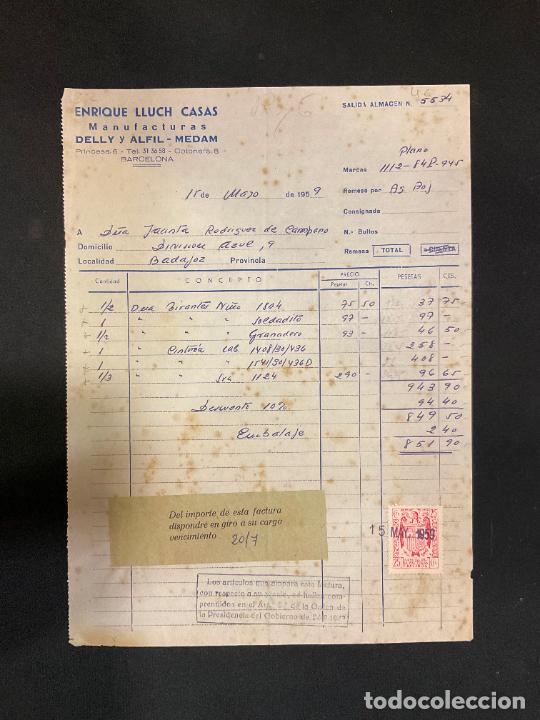 ENRIQUE LLUCH CASAS
Manufacturas
DELLY y ALFIL - MEDAM
Princesa, 6 - Tel. 31 36 58 - Cotoners, 8
BARCELONA
SALIDA ALMACEN N. 5534
Plano
Marcas 1112-848-945
15 de Mayo de 1959
Remese por Ag
Consignada
A Dña Jacinta Rodriguez de Campono
N.º Bultos
Domicilio Division Azul, 9
Remesa TOTAL
Localidad Badajoz Provincia
Cantidad CONCEPTO PRECIO PESETAS CTS.
Pesetas Cts.
1/2 Dna Tirantes Niño 1804 75 50 37 75
1 " " " Soldadito 97 - 97 -
1/2 " " " Granadero 93 - 46 50
1 " Cinturón Cab. 1408/30/436 258 -
1 " " " 1541/30/436D 408 -
1/3 " " Sra 1124 290 - 96 65
943 90
Descuento 10% 94 40
849 50
Embalaje 2 40
851 90
Del importe de esta factura
dispondré en giro a su cargo
vencimiento 20/7
15 MAY. 1959
25 25
Los artículos que ampara esta factura,
con respecto a su
prendidos en el de la Orden de
la Presidencia del Gobierno de
todocoleccion
todocoleccion.net